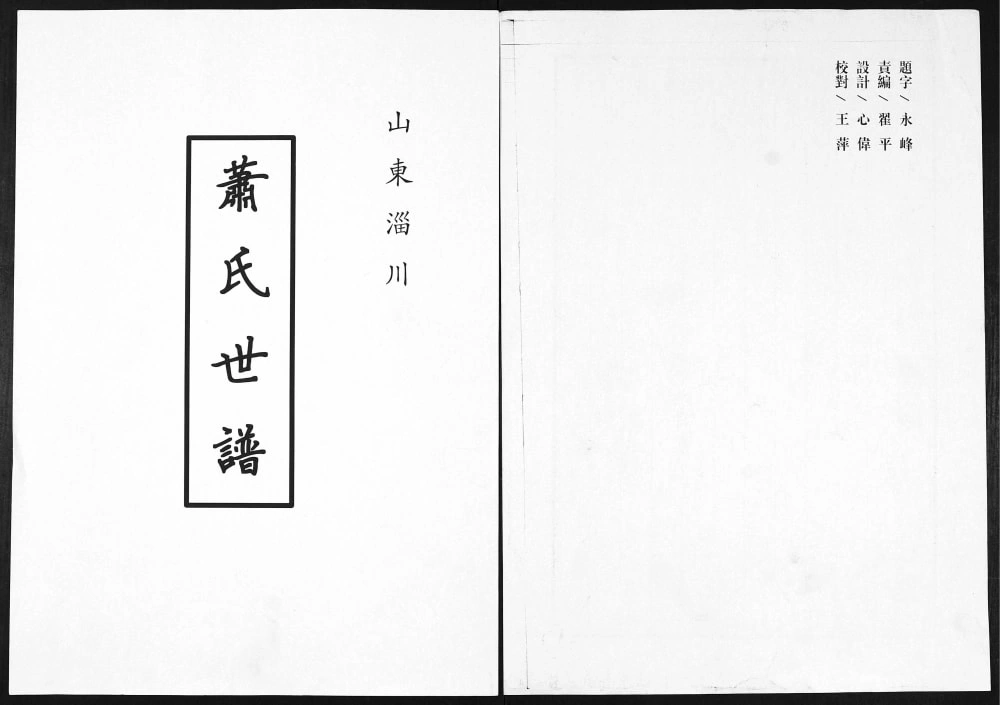 題字／永峰
責編／翟平
設計／心偉
校對／王萍
山東淄川
蕭氏世譜